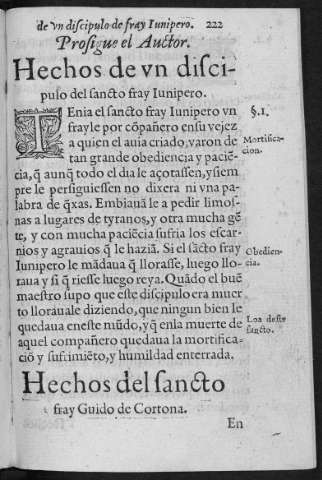 de vn discipulo de fray Iunipero. 222
Prosigue el Auctor.
Hechos de vn disci-
pulo del sancto fray Iunipero.
TEnia el sancto fray Iunipero vn
frayle por cõpañero en su vejez
a quien el auia criado, varon de
tan grande obediencia y paciẽ-
cia, q̃ aunq̃ todo el dia le açotassen, y siem
pre le persiguiessen no dixera ni vna pa-
labra de q̃xas. Embiauã le a pedir limos-
nas a lugares de tyranos, y otra mucha gẽ
te, y con mucha paciẽcia sufria los escar-
nios y agrauios q̃ le haziã. Si el sãcto fray
Iunipero le mãdaua q̃ llorasse, luego llo-
raua y si q̃ riesse luego reya. Quãdo el buẽ
maestro supo que este discipulo era muer
to lloraua le diziendo, que ningun bien le
quedaua en este mũdo, y q̃ en la muerte de
aquel compañero quedaua la mortifica-
ciõ y sufrimiẽto, y humildad enterrada.
§.1.
Mortifica-
cion.
Obedien-
cia.
Loa deste
sancto.
Hechos del sancto
fray Guido de Cortona.
En